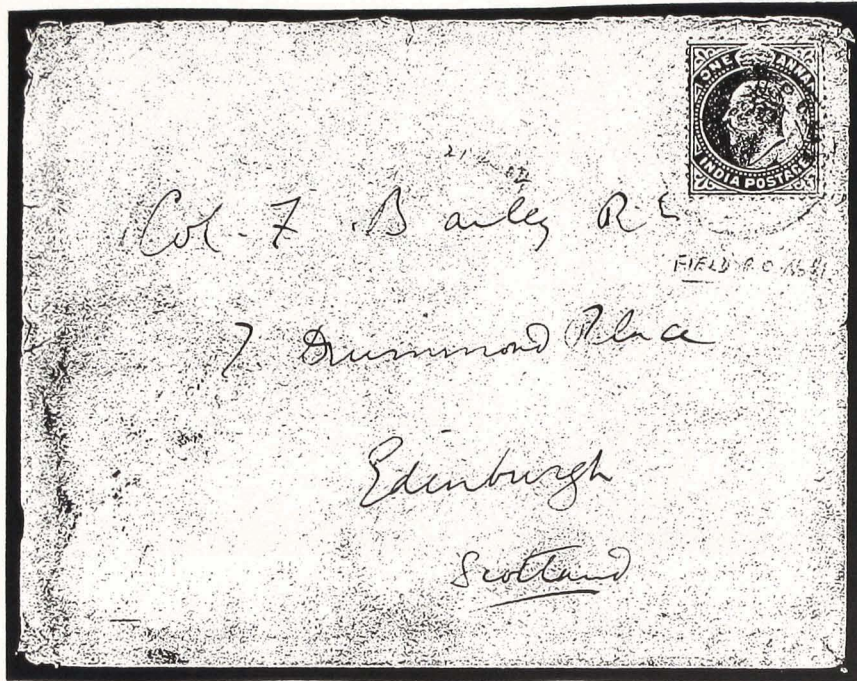 ONE ANNA
INDIA POSTAGE
Col. F. Bailey R.E
FIELD P.O. No
7 Drummond Place
Edinburgh
Scotland